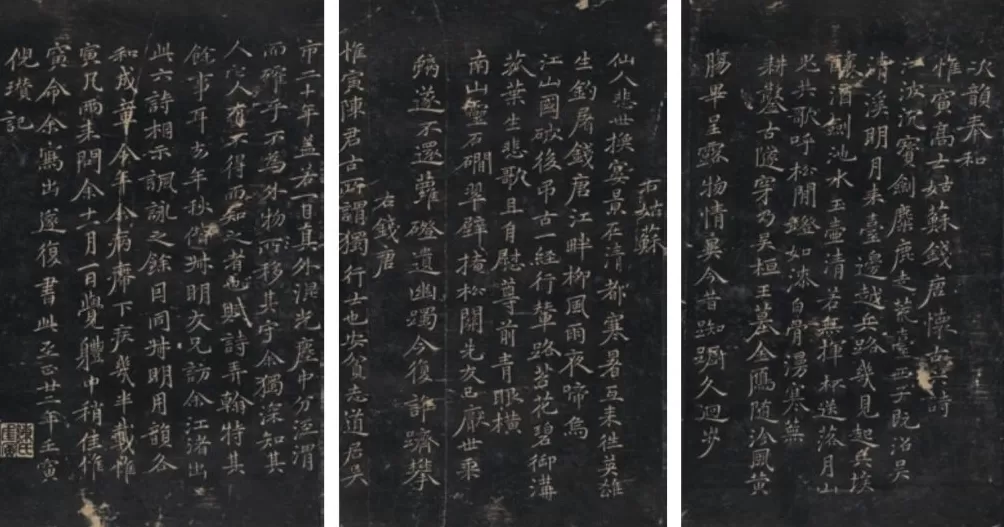 次韻奉和
惟寅高士姑蘇錢唐懷古詩
江波沉寶劍麋鹿走荒臺西子既沼吳
清溪明月來臺邊越兵路幾見起黃埃
釃酒劍池水玉壺清若無揮杯送落月山
鬼共歌呼松間鐙如漆白骨漫寒蕪
耕鑿古隧穿乃吳桓王墓金鴈隨冶風黃
腸畢呈露物情異今昔踟躕久迴步
右姑蘇
仙人悲世換宴景在清都寒暑互來往英雄
生釣屠錢唐江畔柳風雨夜啼烏
江山國破後弔古一經行輦路苔花碧御溝
荻葉生悲歌且自慰尊前青眼橫
南山靈石磵翠壁掩松關先友已厭世乘
鸞遂不還蘿磴遺幽躅今復許躋攀
右錢唐
惟寅陳君古所謂獨行士也安貧志道居吳
市二十年盖若一日真外混光塵中分涇渭
而確乎不為外物所移其守余獨深知其
人它人有不得而知之者也賦詩弄翰特其
餘事耳去年秋偕叔明友兄訪余江渚出
此六詩相示諷詠之餘因同叔明用韻各
和成章今年余病滯下疾幾半載惟
寅凡兩來問余十一月一日覺體中稍佳惟
寅命余寫出遂復書此至正廿二年壬寅
倪瓚記